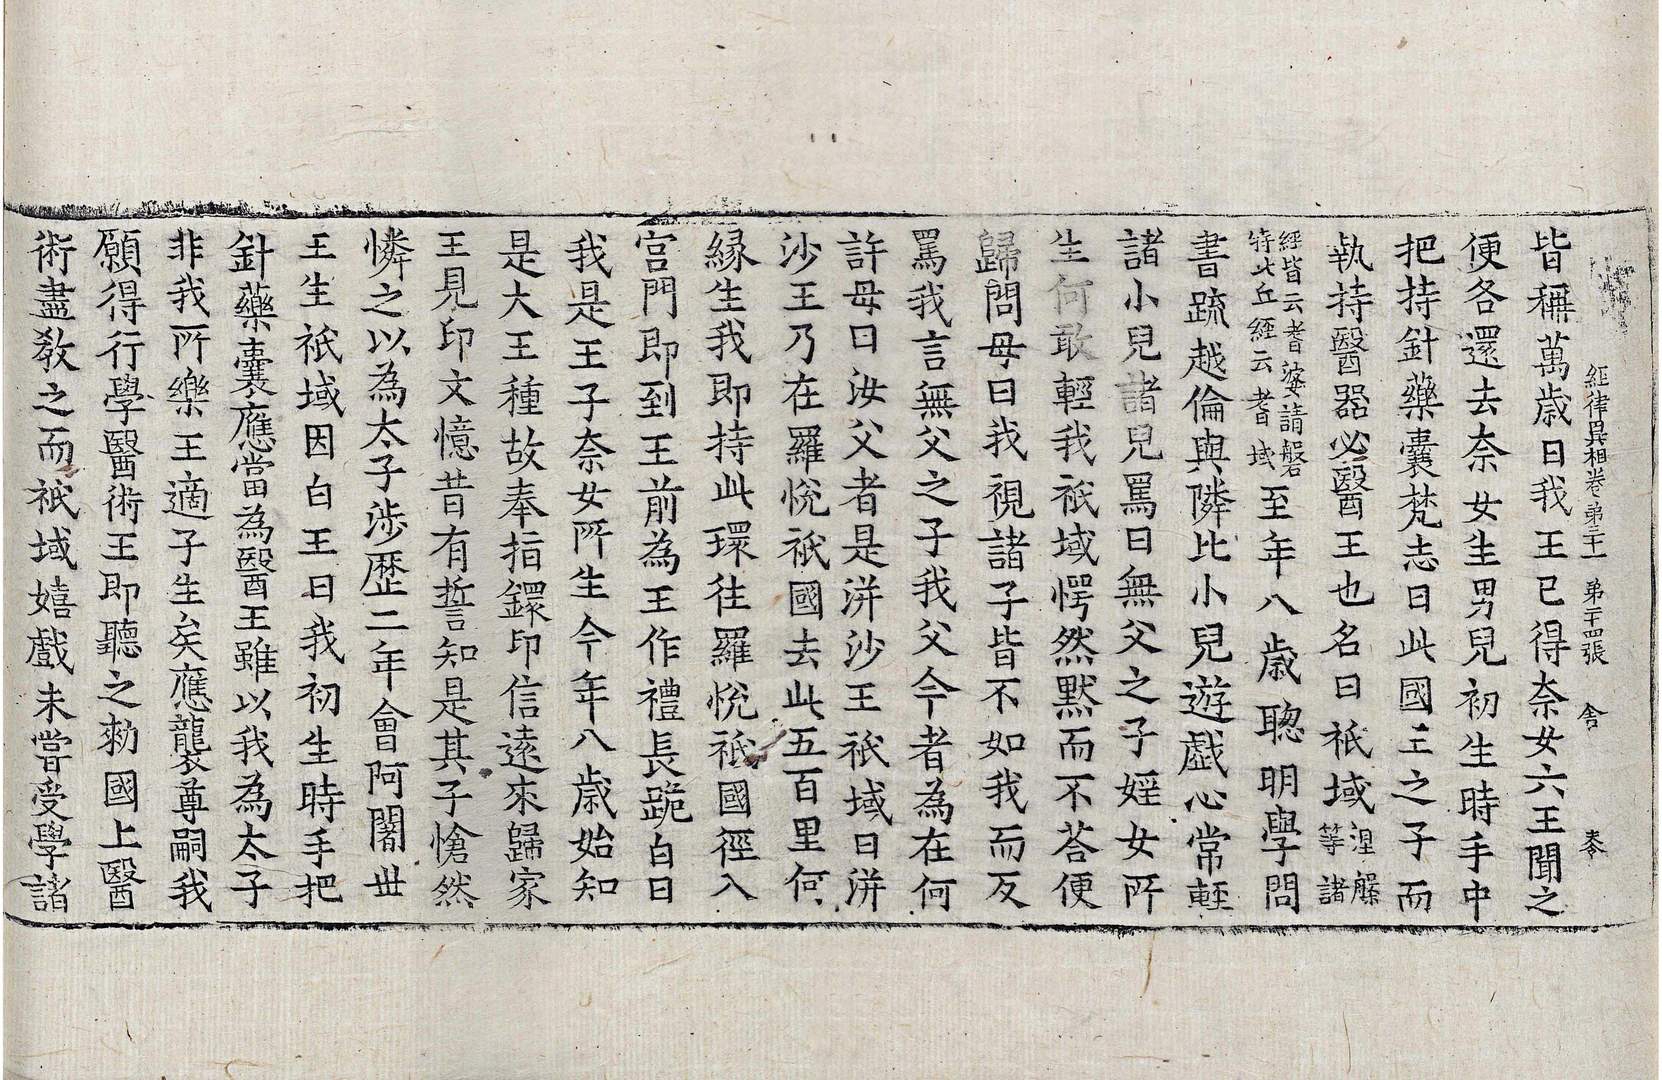 經律異相卷第三十一 第二十四張 舍 夲
皆稱萬歲曰我王已得柰女六王聞之
便各還去柰女生男兒初生時手中
把持針藥囊梵志曰此國王之子而
執持醫器必醫王也名曰祇域涅槃等諸
經皆云耆婆請磐特比丘經云耆域至年八歲聰明學問
書䟽越倫與隣比小兒遊戯心常輕
諸小兒諸兒罵曰無父之子婬女所
生何敢輕我祇域愕然默而不荅便
歸問母曰我視諸子皆不如我而反
罵我言無父之子我父今者為在何
許母曰汝父者是洴沙王祇域曰洴
沙王乃在羅恱祇國去此五百里何
縁生我即持此環往羅恱祇國徑入
宫門即到王前為王作禮長跪白曰
我是王子柰女所生今年八歲始知
是大王種故奉指鐶印信遠來歸家
王見印文憶昔有誓知是其子愴然
憐之以為太子涉歷二年會阿闍丗
王生祇域因白王曰我初生時手把
針藥囊應當為醫王雖以我為太子
非我所樂王適子生矣應襲尊嗣我
願得行學醫術王即聽之勑國上醫
術盡教之而祇域嬉戲未甞受學諸